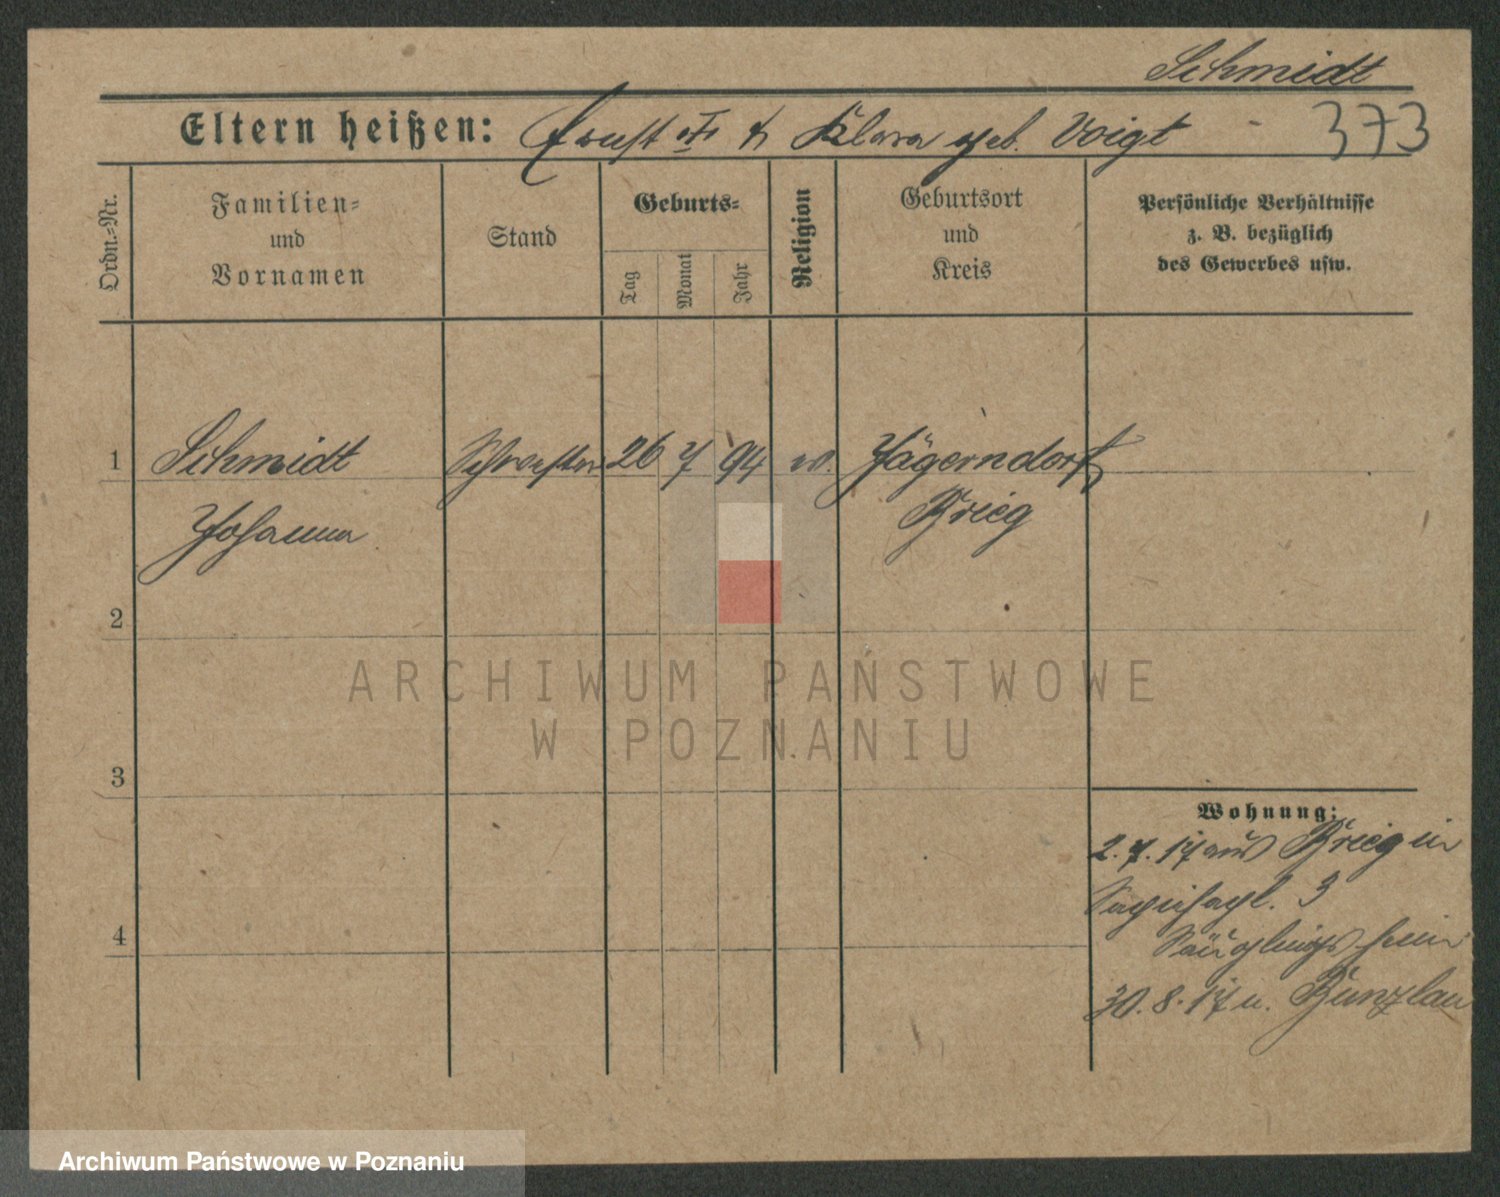 Schmidt
Eltern heißen: Ernst & Klara geb. Voigt - 373
Ordn.=Nr.
Familien=
und
Vornamen
Stand
Geburts=
Tag
Monat
Jahr
Religion
Geburtsort
und
Kreis
Persönliche Verhältnisse
z. B. bezüglich
des Gewerbes usw.
1 Schmidt Schwester 26 7 94 ev. Jägerndorf
Johanna Brieg
2
3
4
Wohnung:
2. 7. 17 aus Brieg in
3
Säuglingsheim
30. 8. 17 n. Bunzlau
ARCHIWUM PAŃSTWOWE
W POZNANIU
Archiwum Państwowe w Poznaniu